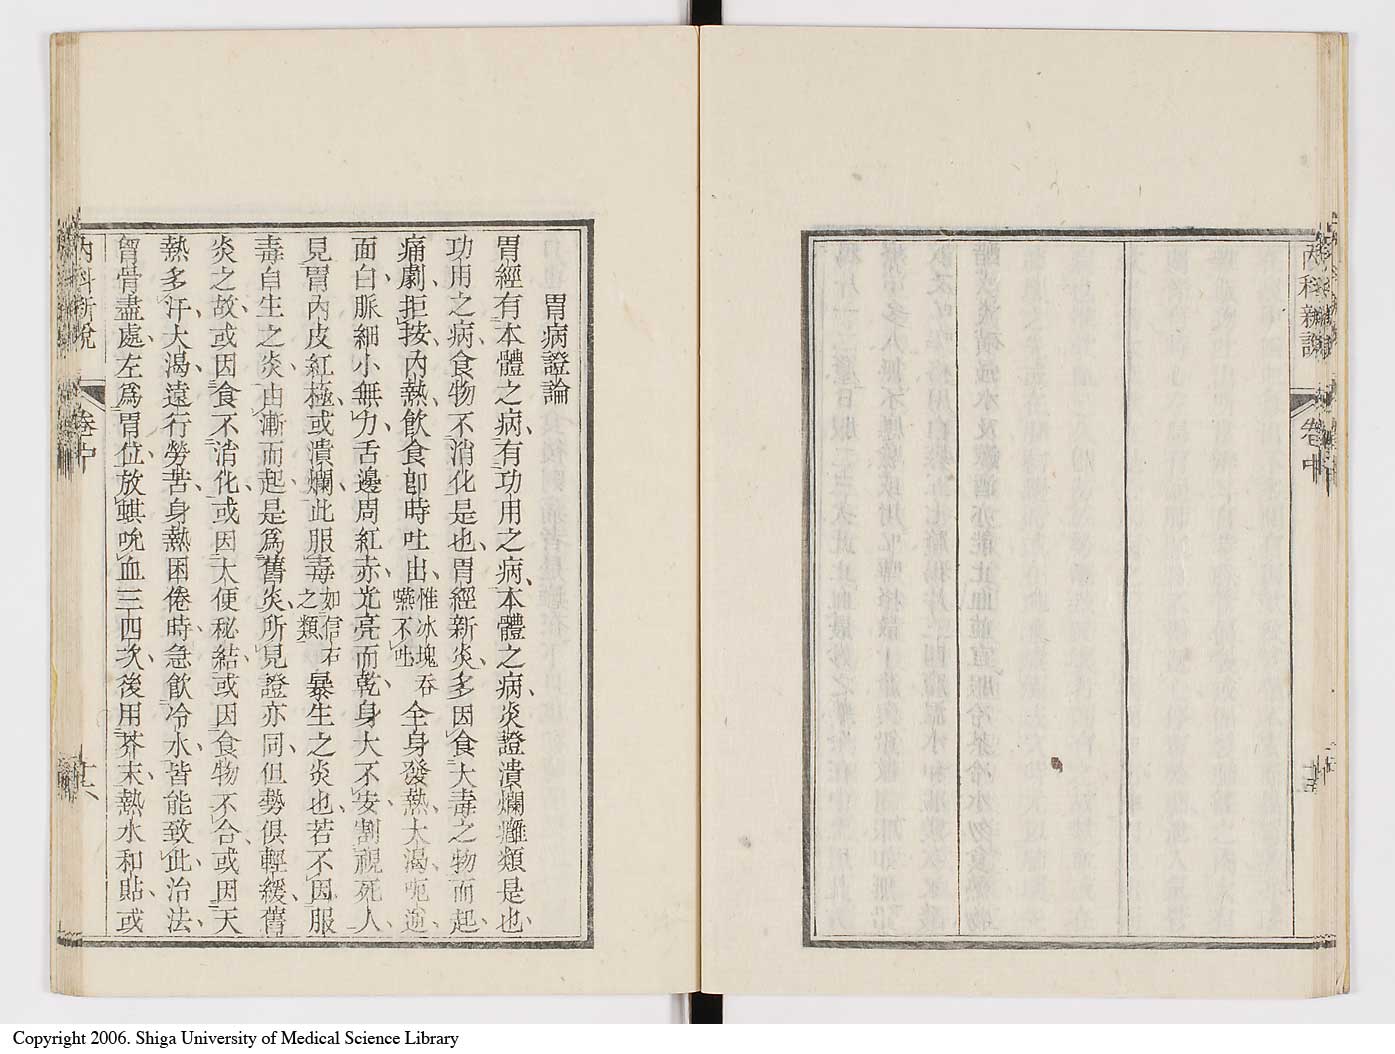 內科新說
卷中
胃病證論
胃經有本體之病、有功用之病、本體之病、炎證潰爛癰類是也、
功用之病、食物不消化是也、胃經新炎、多因食大毒之物而起、
痛劇拒按、內熱飲食卽時吐出、惟冰塊吞嚥不吐全身發熱、大渴、呃逆、
面白、脈細小無力、舌邊周紅赤光亮而乾、身大不安、割視死人、
見胃內皮紅極、或潰爛、此服毒如信石之類暴生之炎也、若不因服
毒自生之炎、由漸而起、是爲舊炎、所見證亦同、但勢俱輕緩、舊
炎之故、或因食不消化、或因大便秘結、或因食物不合、或因天
熱多汗、大渴、遠行勞苦、身熱困倦、時急飲冷水、皆能致此、治法、
胷骨盡處、左爲胃位、放蜞吮血三四次、後用芥末、熱水和貼、或
內科新說
卷中
Copyright 2006. Shiga University of Medical Science Library